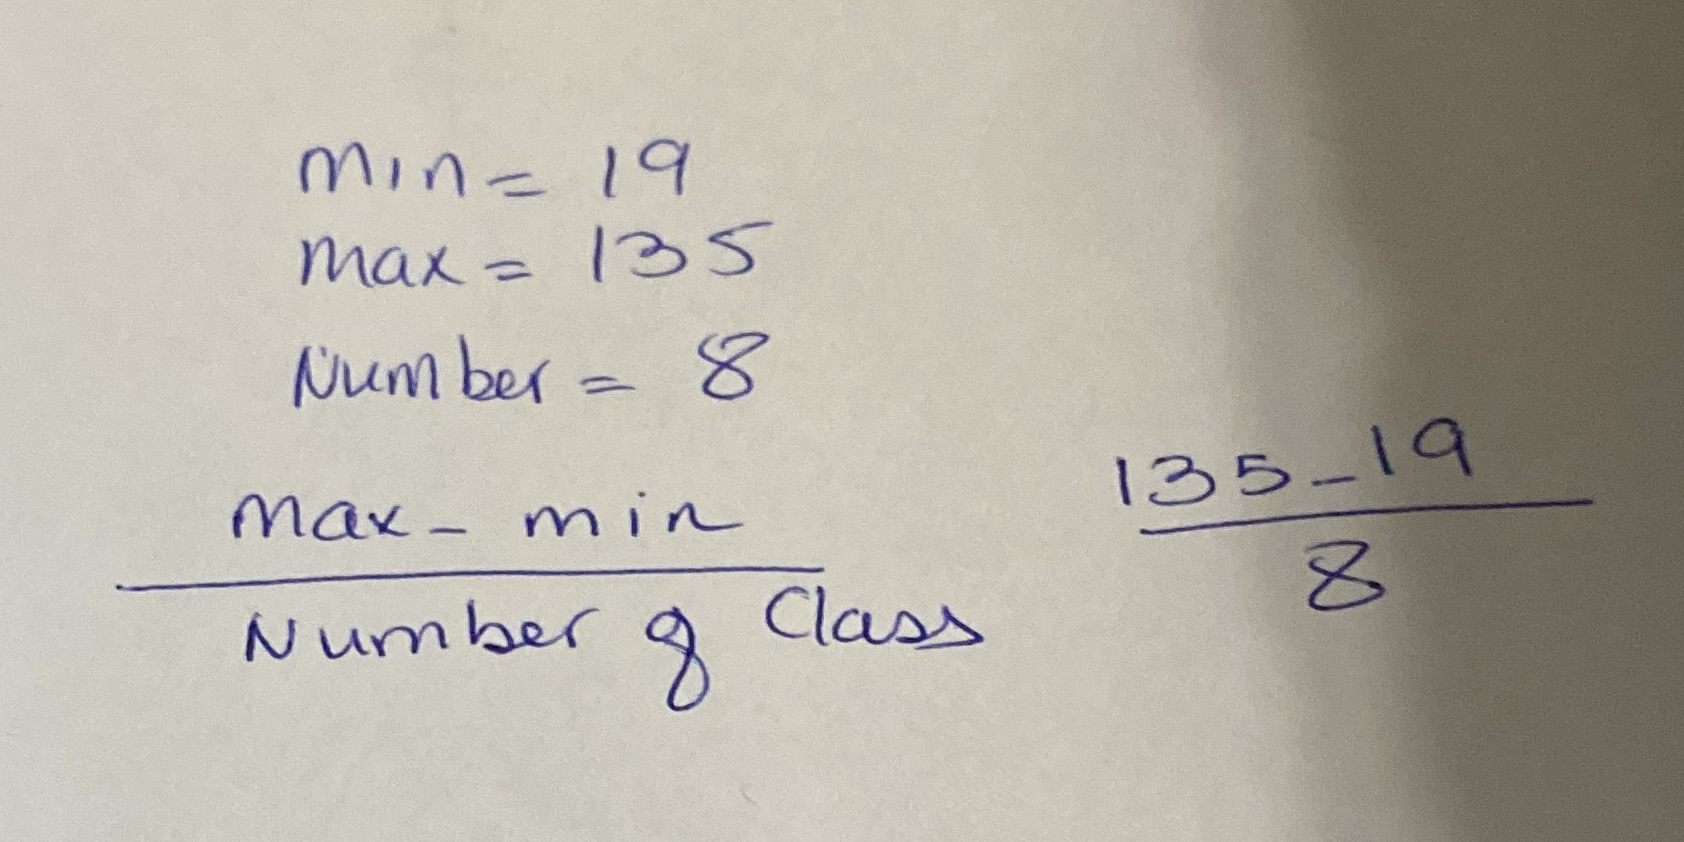 min = 19
max = 135
Number = 8
max - min
Number of Class
135-19
8